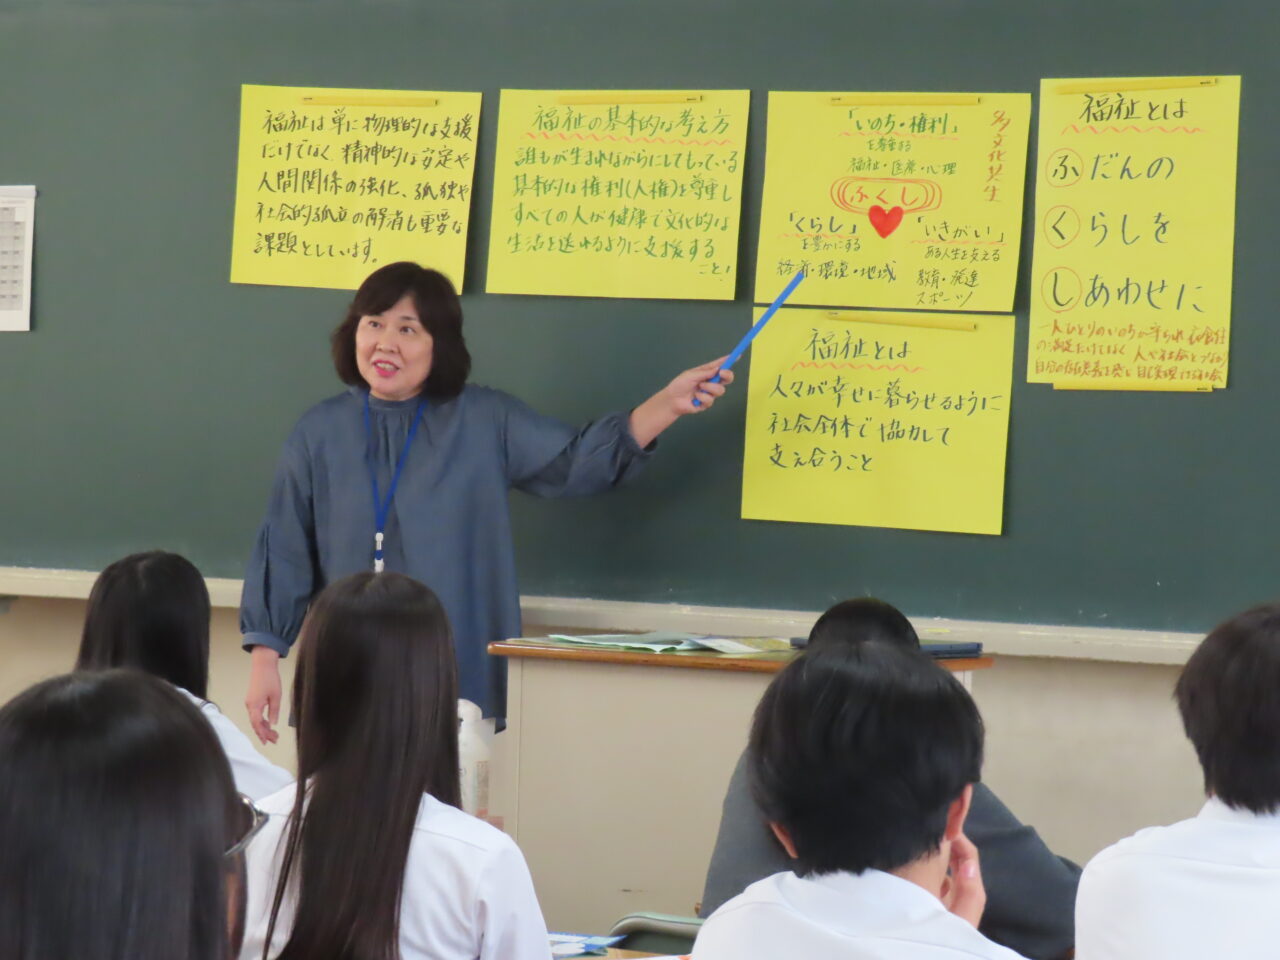 福祉は単に物理的な支援
だけでなく、精神的な安定や
人間関係の強化、孤独や
社会的孤立の解消も重要な
課題としています。
福祉の基本的な考え方
誰もが生まれながらにしてもっている
基本的な権利(人権)を尊重し
すべての人が健康で文化的な
生活を送れるように支援する
こと!
「いのち・権利」
を尊重する
福祉・医療・心理
多文化共生
ふくし
「くらし」
を豊かにする
経済・環境・地域
「いきがい」
ある人生を支える
教育・発達
スポーツ
福祉とは
人々が幸せに暮らせるように
社会全体で協力して
支え合うこと
福祉とは
ふだんの
くらしを
しあわせに
一人ひとりのいのちが守られ衣食住
の満足だけでなく人や社会とつながり
自分の存在意義を